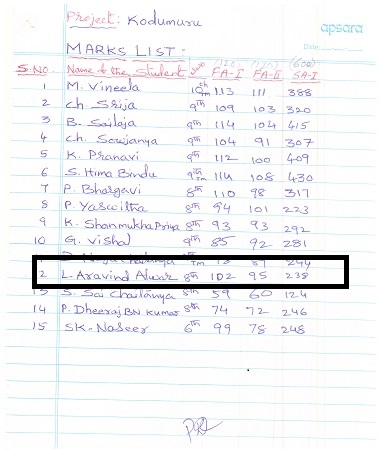 Project: Kodumuru
apsara
Date
MARKS LIST:
(120) (120) (600)
S.NO. Name of the Student FA-I FA-II SA-I
1 M. Vineela 10th 113 111 388
2 Ch. Srija 9th 109 103 320
3 B. Sailaja 9th 114 104 415
4 Ch. Sowjanya 9th 104 91 307
5 K. Pranavi 9th 112 100 409
6 S. Hima Bindu 9th 114 108 430
7 P. Bhargavi 8th 110 98 317
8 P. Yaswitha 8th 94 101 223
9 K. Shanmukha Priya 8th 93 93 292
10 G. Vishal 9th 85 92 281
244
2 L. Aravind Alwar 8th 102 95 238
13 S. Sai Chaitanya 8th 59 60 124
14 P. Dheeraj BN Kumar 8th 74 72 246
15 SK. Naseer 6th 99 78 248